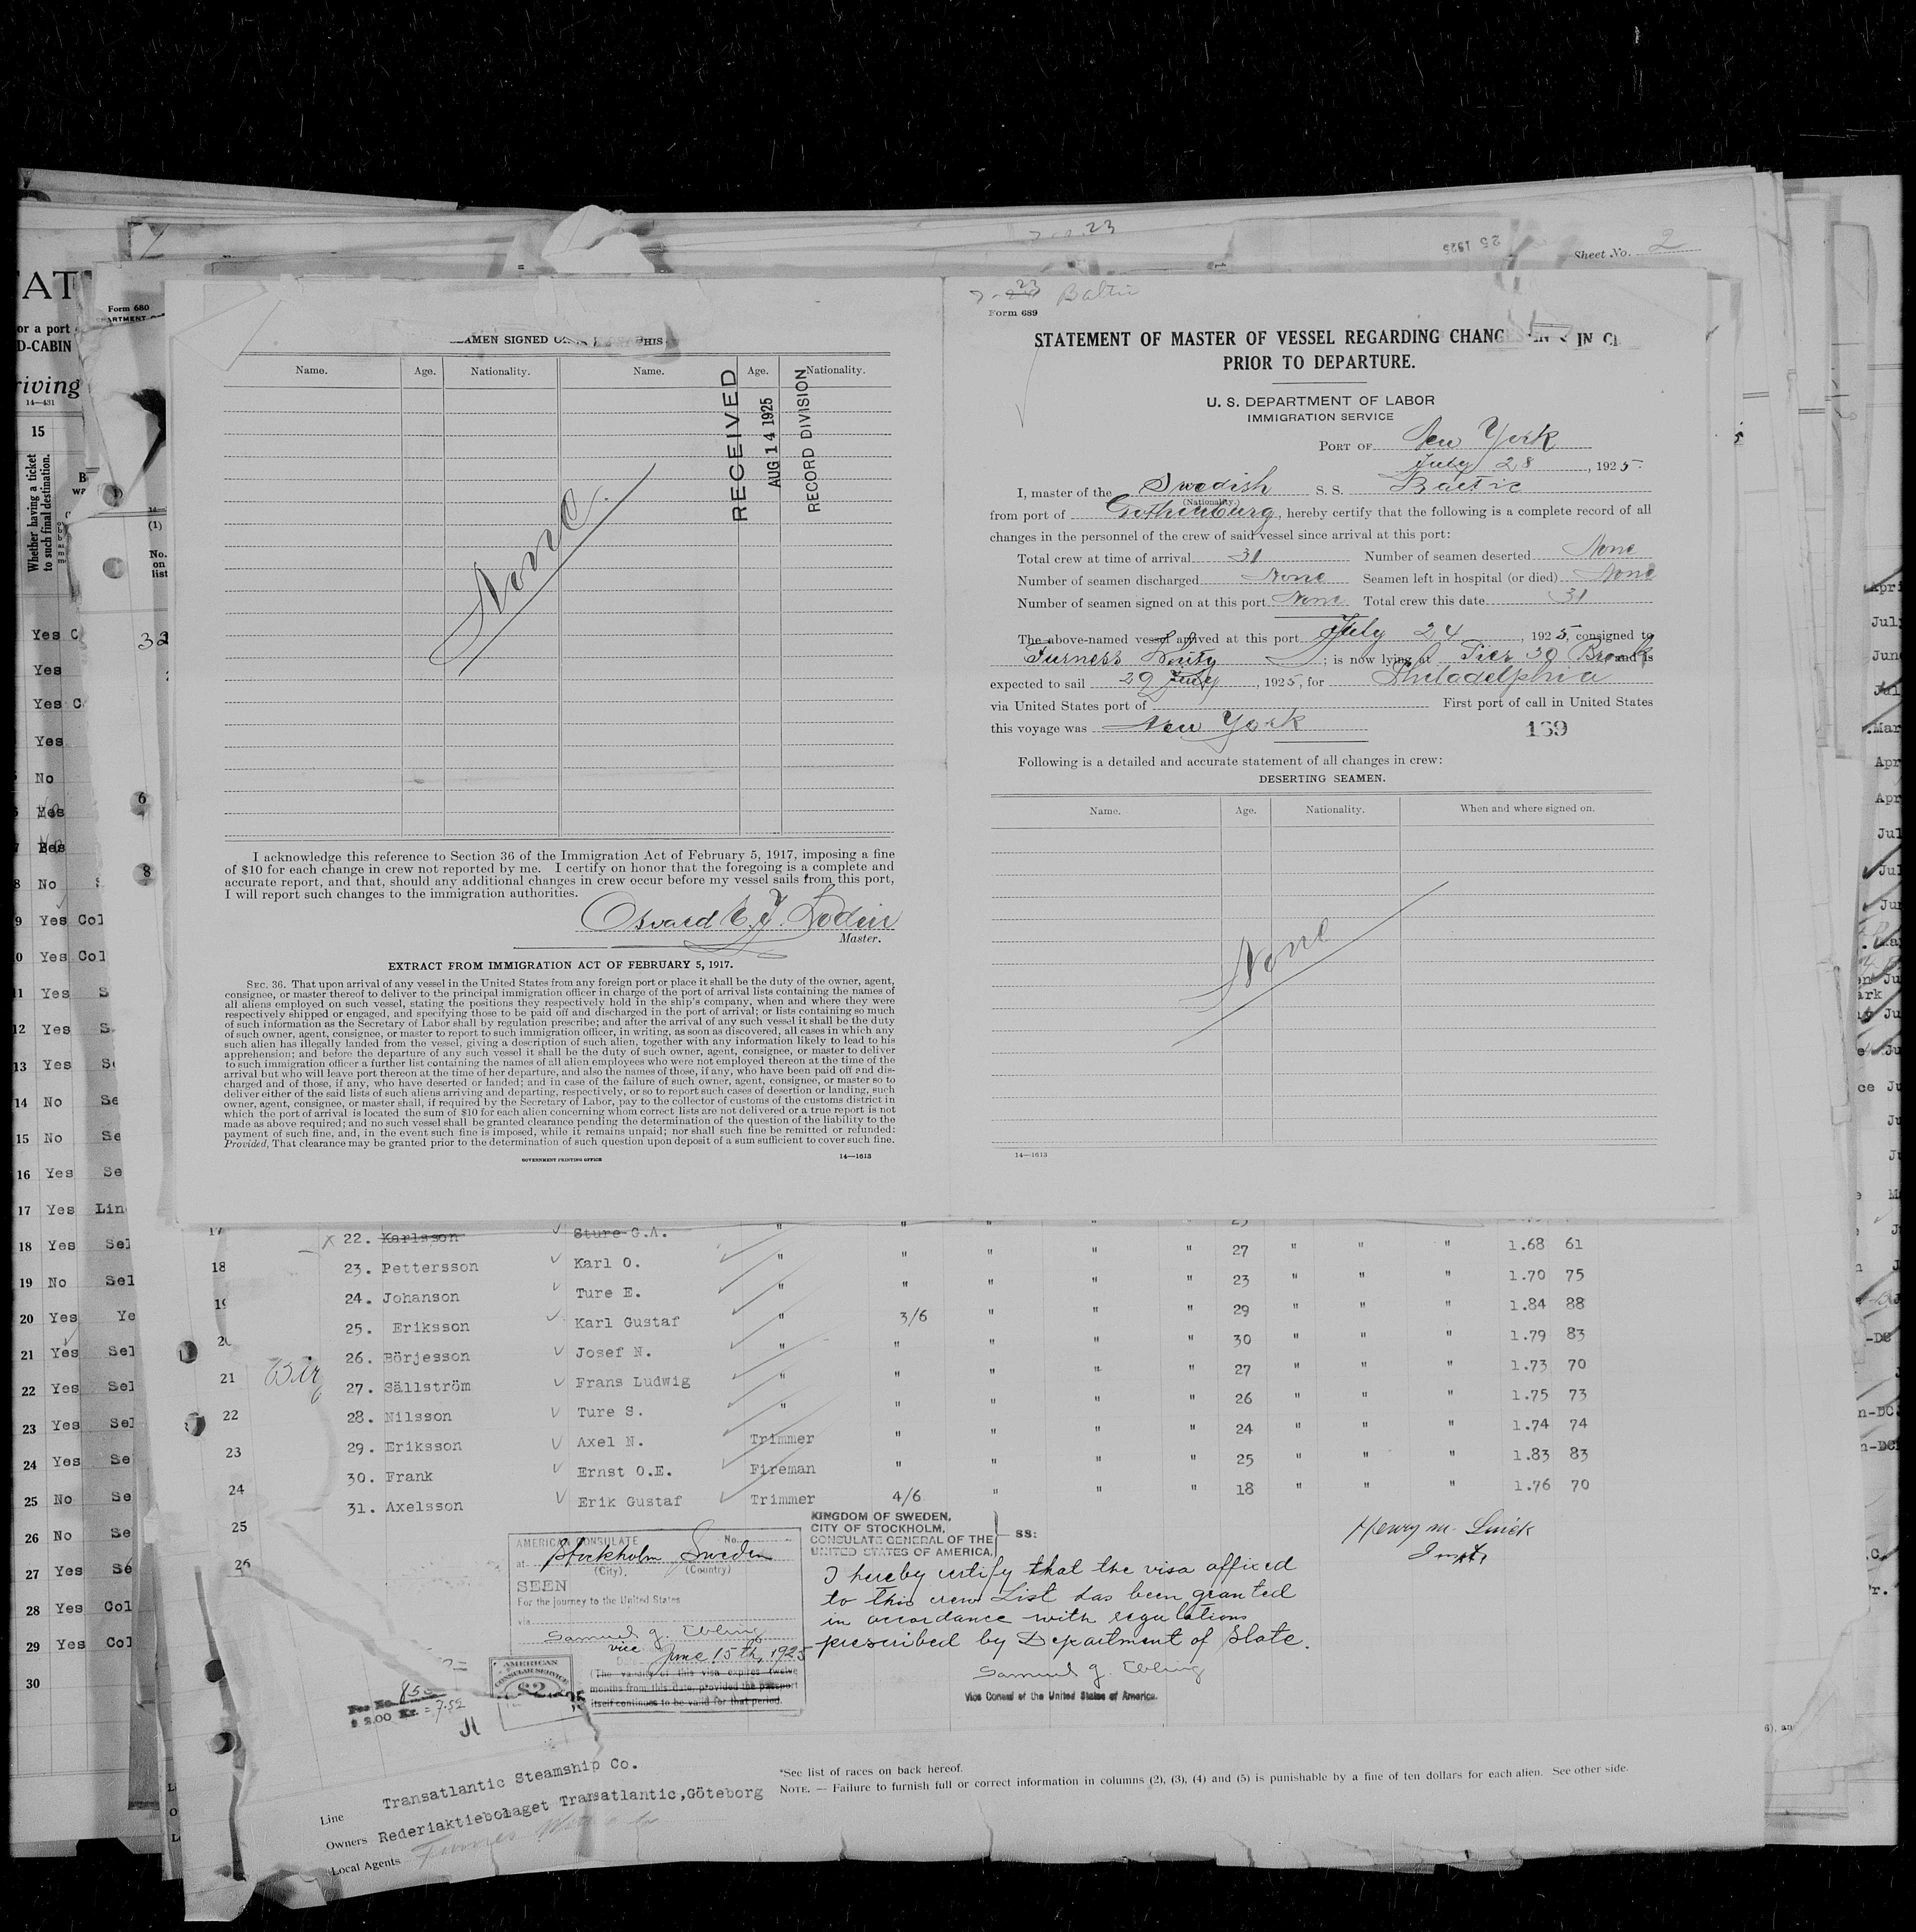 7-23
23
25 1925
Sheet No. 2
AT
or a port
D-CABIN
riving
14—431
15
Whether having a ticket
to such final destination.
Form 680
(1)
No.
on
list
32
6
8
SEAMEN SIGNED
THIS
Name. Age. Nationality. Name. Age. Nationality.
RECEIVED
AUG 14 1925
RECORD DIVISION
None
I acknowledge this reference to Section 36 of the Immigration Act of February 5, 1917, imposing a fine
of $10 for each change in crew not reported by me. I certify on honor that the foregoing is a complete and
accurate report, and that, should any additional changes in crew occur before my vessel sails from this port,
I will report such changes to the immigration authorities.
Osvard E. T. Lodin
Master.
EXTRACT FROM IMMIGRATION ACT OF FEBRUARY 5, 1917.
SEC. 36. That upon arrival of any vessel in the United States from any foreign port or place it shall be the duty of the owner, agent,
consignee, or master thereof to deliver to the principal immigration officer in charge of the port of arrival lists containing the names of
all aliens employed on such vessel, stating the positions they respectively hold in the ship's company, when and where they were
respectively shipped or engaged, and specifying those to be paid off and discharged in the port of arrival; or lists containing so much
of such information as the Secretary of Labor shall by regulation prescribe; and after the arrival of any such vessel it shall be the duty
of such owner, agent, consignee, or master to report to such immigration officer, in writing, as soon as discovered, all cases in which any
such alien has illegally landed from the vessel, giving a description of such alien, together with any information likely to lead to his
apprehension; and before the departure of any such vessel it shall be the duty of such owner, agent, consignee, or master to deliver
to such immigration officer a further list containing the names of all alien employees who were not employed thereon at the time of the
arrival but who will leave port thereon at the time of her departure, and also the names of those, if any, who have been paid off and dis-
charged and of those, if any, who have deserted or landed; and in case of the failure of such owner, agent, consignee, or master so to
deliver either of the said lists of such aliens arriving and departing, respectively, or so to report such cases of desertion or landing, such
owner, agent, consignee, or master shall, if required by the Secretary of Labor, pay to the collector of customs of the customs district in
which the port of arrival is located the sum of $10 for each alien concerning whom correct lists are not delivered or a true report is not
made as above required; and no such vessel shall be granted clearance pending the determination of the question of the liability to the
payment of such fine, and, in the event such fine is imposed, while it remains unpaid; nor shall such fine be remitted or refunded:
Provided, That clearance may be granted prior to the determination of such question upon deposit of a sum sufficient to cover such fine.
GOVERNMENT PRINTING OFFICE 14—1613
7-23 Baltic
Form 689
STATEMENT OF MASTER OF VESSEL REGARDING CHANGES IN
PRIOR TO DEPARTURE.
U. S. DEPARTMENT OF LABOR
IMMIGRATION SERVICE
PORT OF New York
July 28, 1925.
I, master of the Swedish S. S. Baltic
(Nationality.)
from port of Gothenburg, hereby certify that the following is a complete record of all
changes in the personnel of the crew of said vessel since arrival at this port:
Total crew at time of arrival 31 Number of seamen deserted None
Number of seamen discharged None Seamen left in hospital (or died) None
Number of seamen signed on at this port None Total crew this date 31
The above-named vessel arrived at this port July 24, 1925, consigned to
Furness Withy; is now lying at Pier 30 Brook and is
expected to sail 29 July, 1925, for Philadelphia
via United States port of First port of call in United States
this voyage was New York 169
Following is a detailed and accurate statement of all changes in crew:
DESERTING SEAMEN.
Name. Age. Nationality. When and where signed on.
None
14—1613
Yes
Yes
Yes
Yes
No
Yes
8 No
9 Yes Col
Yes Col
11 Yes S
12 Yes S
13 Yes Se
14 No Se
15 No Se
16 Yes Se
17 Yes Lin
18 Yes Sel
19 No Sel
20 Yes Ye
21 Yes Sel
22 Yes Sel
23 Yes Sel
24 Yes Se
25 No Se
26 No Se
27 Yes Se
28 Yes Col
29 Yes Col
30
17
18
19
20
21
22
23
24
25
26
x 22. Karlsson Sture G.A. " " " " " 25
23. Pettersson Karl O. " " " " " 27 " " " 1.68 61
24. Johanson Ture E. " " " " " 23 " " " 1.70 75
25. Eriksson Karl Gustaf " 3/6 " " " 29 " " " 1.84 88
26. Börjesson Josef N. " " " " " 30 " " " 1.79 83
27. Sällström Frans Ludwig " " " " " 27 " " " 1.73 70
28. Nilsson Ture S. " " " " " 26 " " " 1.75 73
29. Eriksson Axel N. Trimmer " " " " 24 " " " 1.74 74
30. Frank Ernst O.E. Fireman " " " " 25 " " " 1.83 83
31. Axelsson Erik Gustaf Trimmer 4/6 " " " 18 " " " 1.76 70
AMERICAN CONSULATE No.
at Stockholm, Sweden
(City). (Country)
SEEN
For the journey to the United States
via
Samuel G. Ebling
vice
Date June 15th, 1925
(The validity of this visa expires twelve
months from this date, provided the passport
itself continues to be valid for that period.
AMERICAN
CONSULAR SERVICE
$2
Fee No. 850
$ 2.00 Kr. = 7.52
KINGDOM OF SWEDEN,
CITY OF STOCKHOLM,
CONSULATE GENERAL OF THE
UNITED STATES OF AMERICA,
SS:
I hereby certify that the visa affixed
to this crew List has been granted
in accordance with regulations
prescribed by Department of State.
Samuel G. Ebling
Vice Consul of the United States of America.
Henry M.
Inspt
Line Transatlantic Steamship Co.
Owners Rederiaktiebolaget Transatlantic, Göteborg
Local Agents Furness Withy & Co
*See list of races on back hereof.
NOTE. — Failure to furnish full or correct information in columns (2), (3), (4) and (5) is punishable by a fine of ten dollars for each alien. See other side.